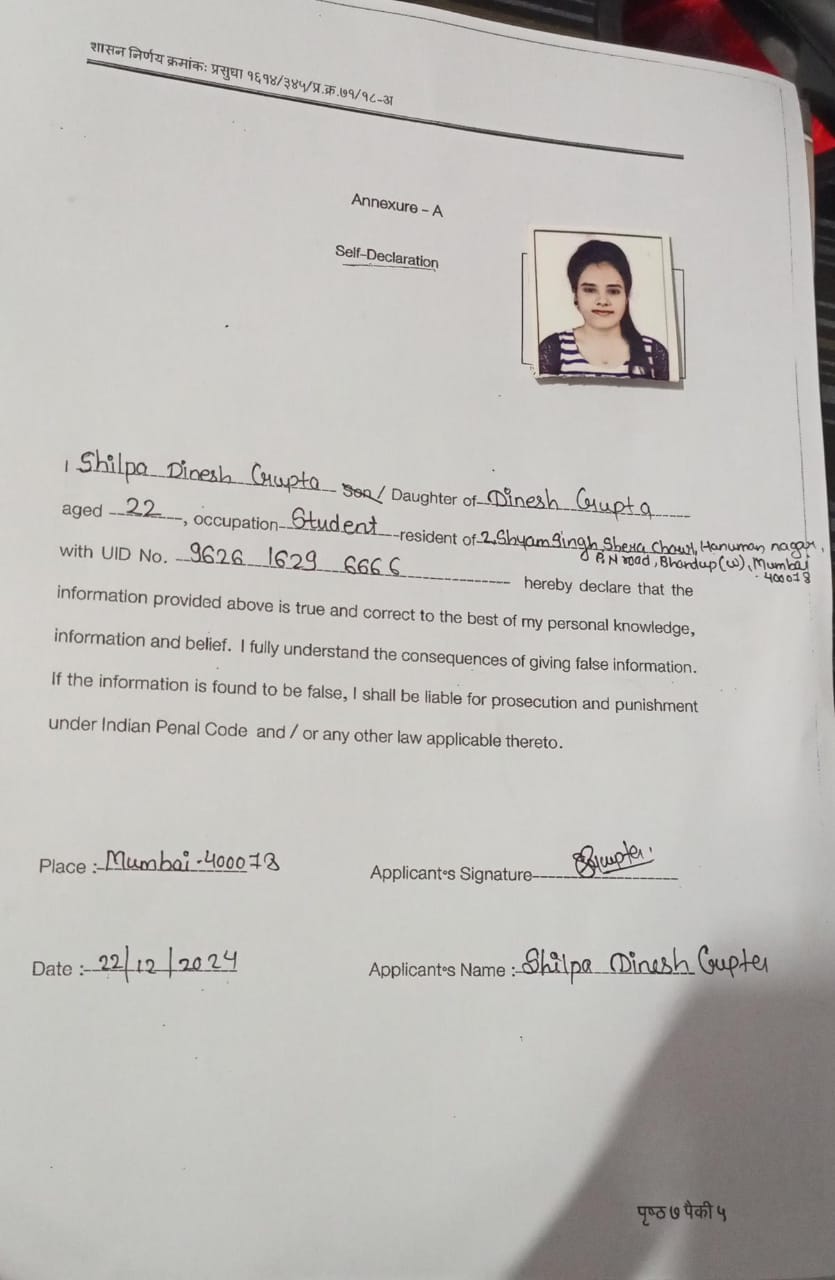 शासन निर्णय क्रमांकः प्रसुधा १६१४/३४५/प्र.क्र.७१/१८-अ
Annexure – A
Self-Declaration
I Shilpa Dinesh Gupta Son / Daughter of Dinesh Gupta
aged 22, occupation Student resident of 2, Shyamsingh Shera Chawl, Hanuman nagar,
P.N road, Bhandup (W), Mumbai
- 400078
with UID No. 9626 1629 6666 hereby declare that the
information provided above is true and correct to the best of my personal knowledge,
information and belief. I fully understand the consequences of giving false information.
If the information is found to be false, I shall be liable for prosecution and punishment
under Indian Penal Code and / or any other law applicable thereto.
Place : Mumbai - 400078 Applicant's Signature SGupta
Date : 22/12/2024 Applicant's Name : Shilpa Dinesh Gupta
पृष्ठ ७ पैकी ५